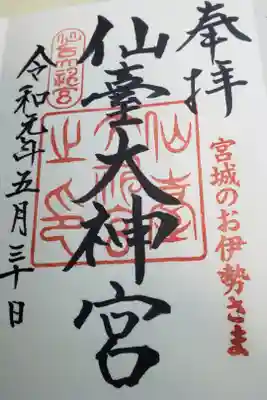 奉拝
宮城のお伊勢さま
仙臺大神宮
令和元年五月三十日